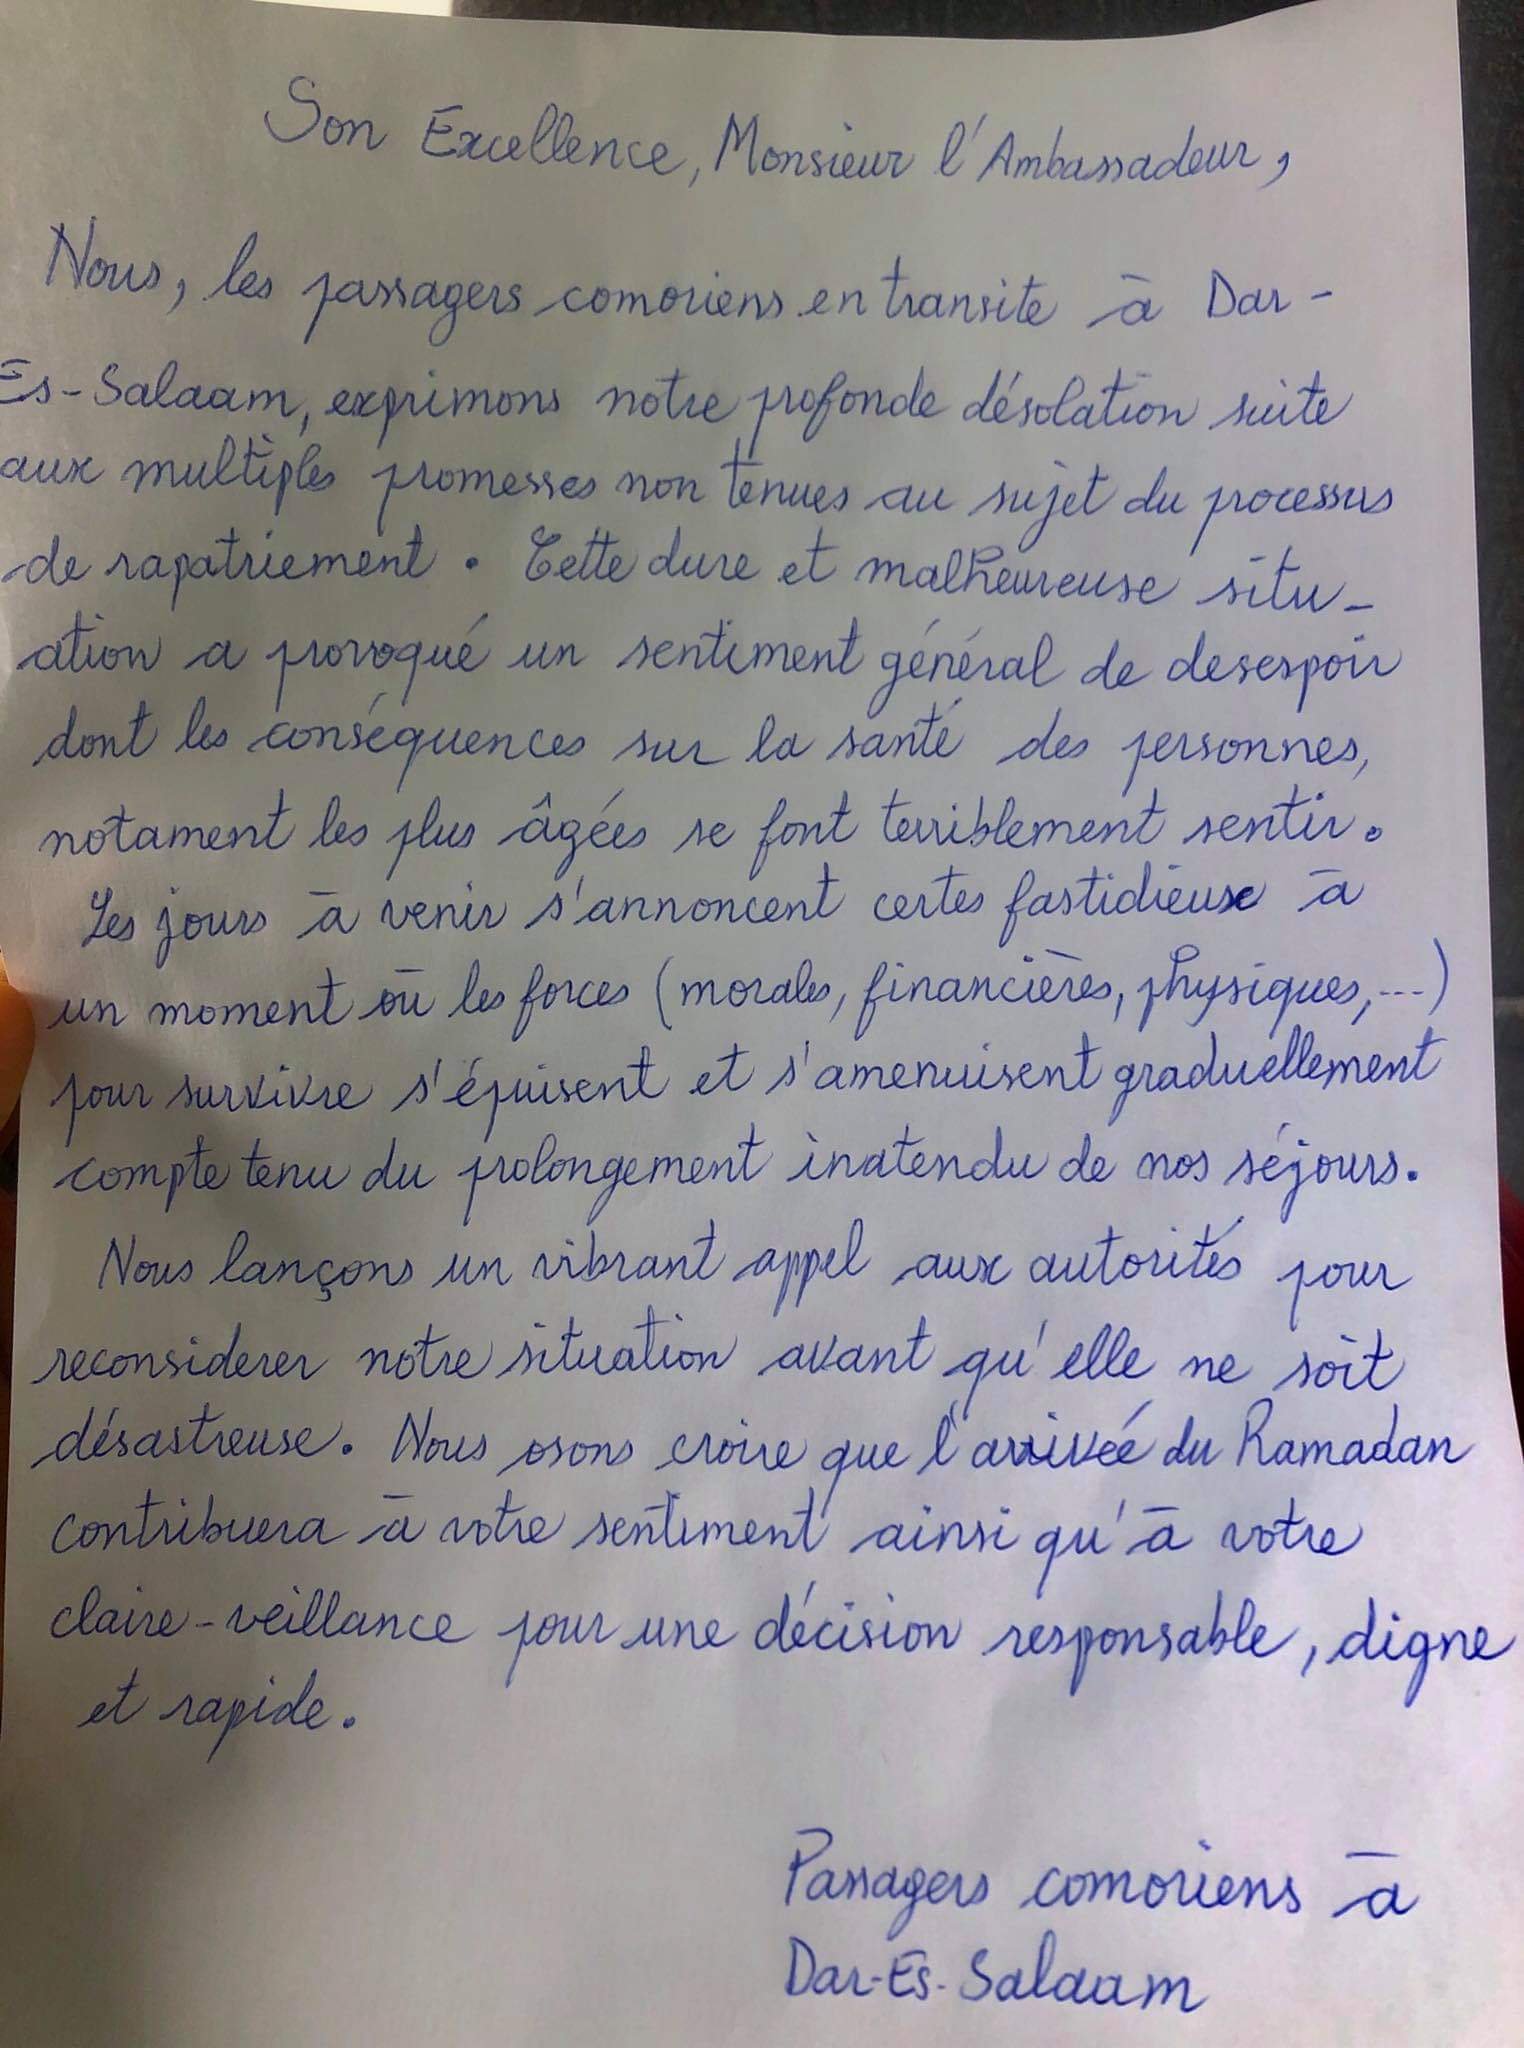 Son Excellence, Monsieur l'Ambassadeur,
Nous, les passagers comoriens en transite à Dar-
Es-Salaam, exprimons notre profonde désolation suite
aux multiples promesses non tenues au sujet du processus
de rapatriement. Cette dure et malheureuse situ-
ation a provoqué un sentiment général de desespoir
dont les conséquences sur la santé des personnes,
notament les plus âgées se font terriblement sentir.
Les jours à venir s'annoncent certes fastidieux à
un moment où les forces (morales, financières, physiques,...)
pour survivre s'épuisent et s'amenuisent graduellement
compte tenu du prolongement inatendu de nos séjours.
Nous lançons un vibrant appel aux autorités pour
reconsiderer notre situation avant qu'elle ne soit
désastreuse. Nous osons croire que l'arrivée du Ramadan
contribuera à votre sentiment ainsi qu'à votre
claire-veillance pour une décision responsable, digne
et rapide.
Passagers comoriens à
Dar-Es-Salaam